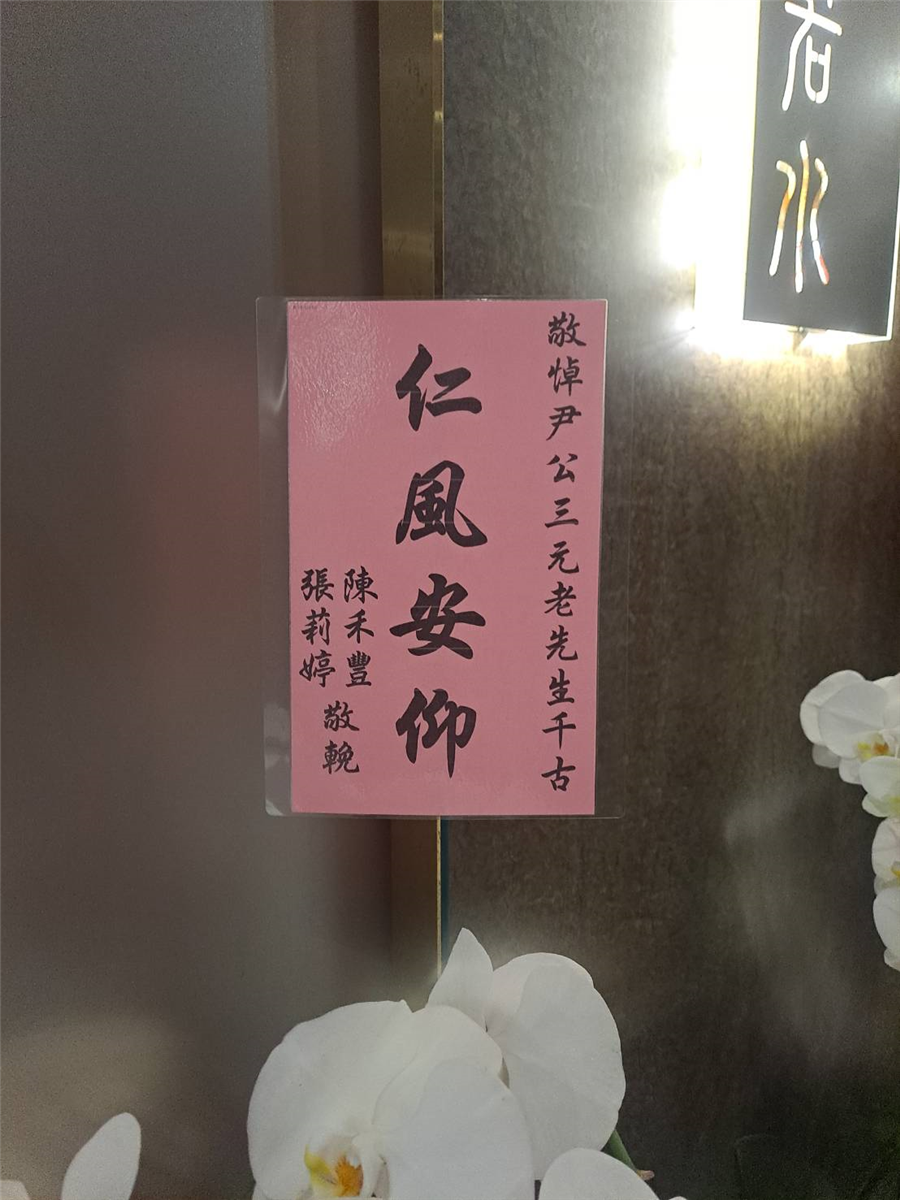 敬悼尹公三元老先生千古
仁風安仰
陳禾豐
張莉婷
敬輓
若水